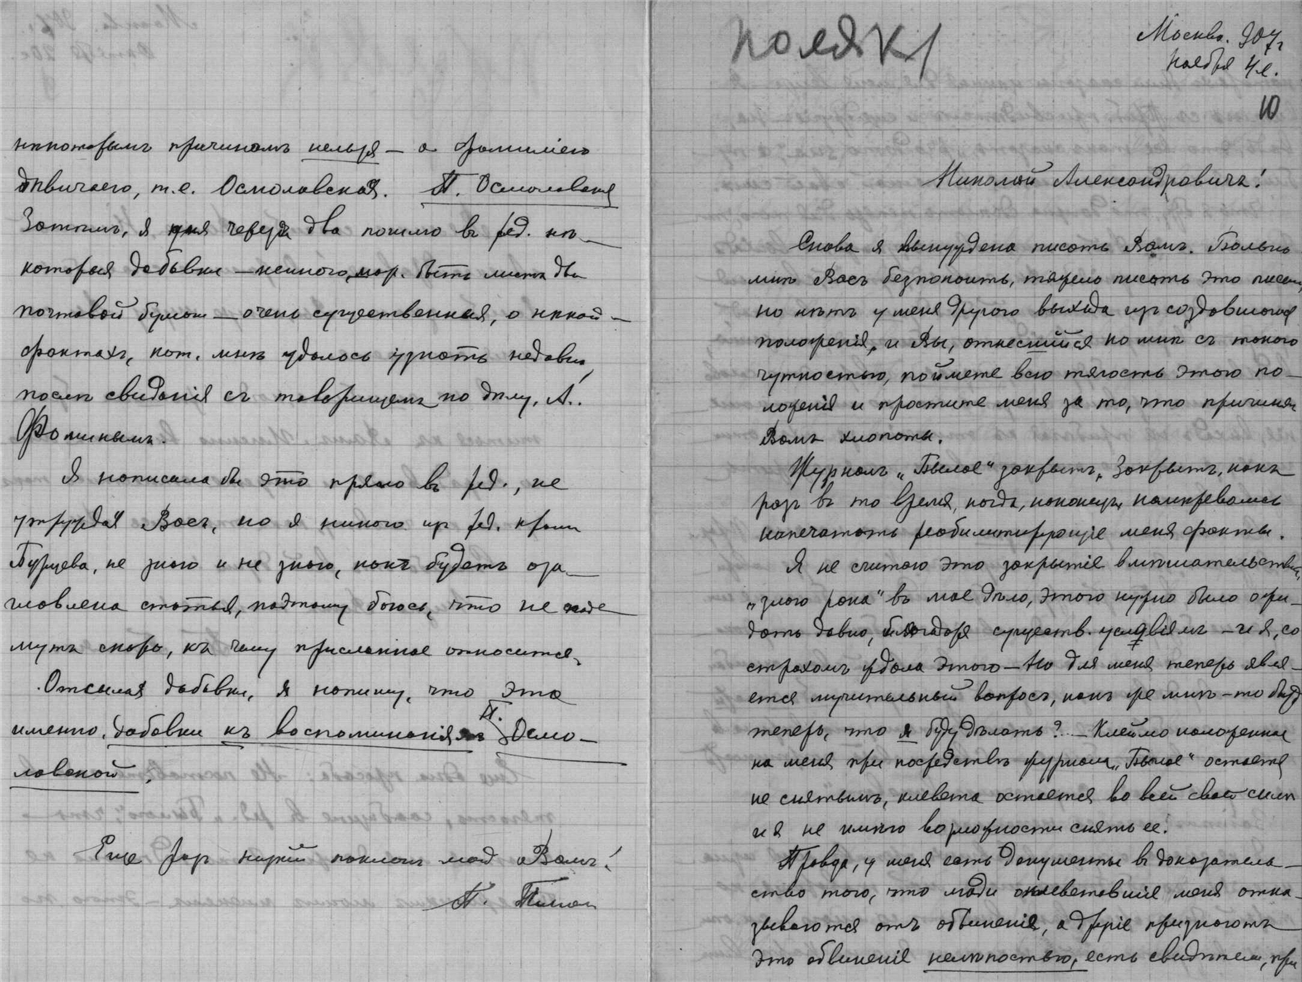 некоторымъ причинамъ нельзя — а фамиліею
дѣвичьею, т.е. Осмоловская. П. Осмоловская
Затѣмъ, я дня черезъ два пошлю въ ред. нѣ-
которыя добавки — немного, мож. быть листа два
почтовой бумаги — очень существенныя, о
фактахъ, кот. мнѣ удалось узнать недавно,
послѣ свиданія съ товарищемъ по дѣлу, А.
Фоминымъ.
Я написала бы это прямо въ ред., не
утруждая Васъ, но я никого изъ ред. кромѣ
Бурцева, не знаю и не знаю, какъ будетъ оза-
главлена статья, поэтому боюсь, что не
мутъ скоро, къ чему присланное относится.
Отсылая добавки, я напишу, что это
именно добавки къ воспоминаніямъ П. Осмо-
ловской.
Еще разъ низкій поклонъ мой Вамъ!
П.
поляк
Москва. 907 г.
Ноября 4 г.
10
Николай Александровичъ!
Снова я вынуждена писать Вамъ. Больно
мнѣ Васъ безпокоить, тяжело писать это письмо,
но нѣтъ у меня другого выхода изъ создавшагося
положенія, и Вы, отнесшійся ко мнѣ съ такою
чуткостью, поймете всю тягость этого по-
ложенія и простите меня за то, что причиняю
Вамъ хлопоты.
Журналъ „Былое" закрытъ. Закрытъ, какъ
разъ въ то время, когда, наконецъ, намѣревались
напечатать реабилитирующіе меня факты.
Я не считаю это закрытіе вмѣшательствомъ
„злого рока" въ мое дѣло, этого нужно было ожи-
дать давно, благодаря существ. условіямъ — и я, со
страхомъ ждала этого — Но для меня теперь явля-
ется мучительный вопросъ, какъ же мнѣ-то быть
теперь, что я буду дѣлать? — Клеймо наложенное
на меня при посредствѣ журнала „Былое" остается
не снятымъ, клевета остается во всей своей силѣ
и я не имѣю возможности снять ее!
Правда, у меня есть документы въ доказатель-
ство того, что люди оклеветавшіе меня отка-
зываются отъ обвиненія, а другіе признаютъ
это обвиненіе нелѣпостью, есть свидѣтели, при